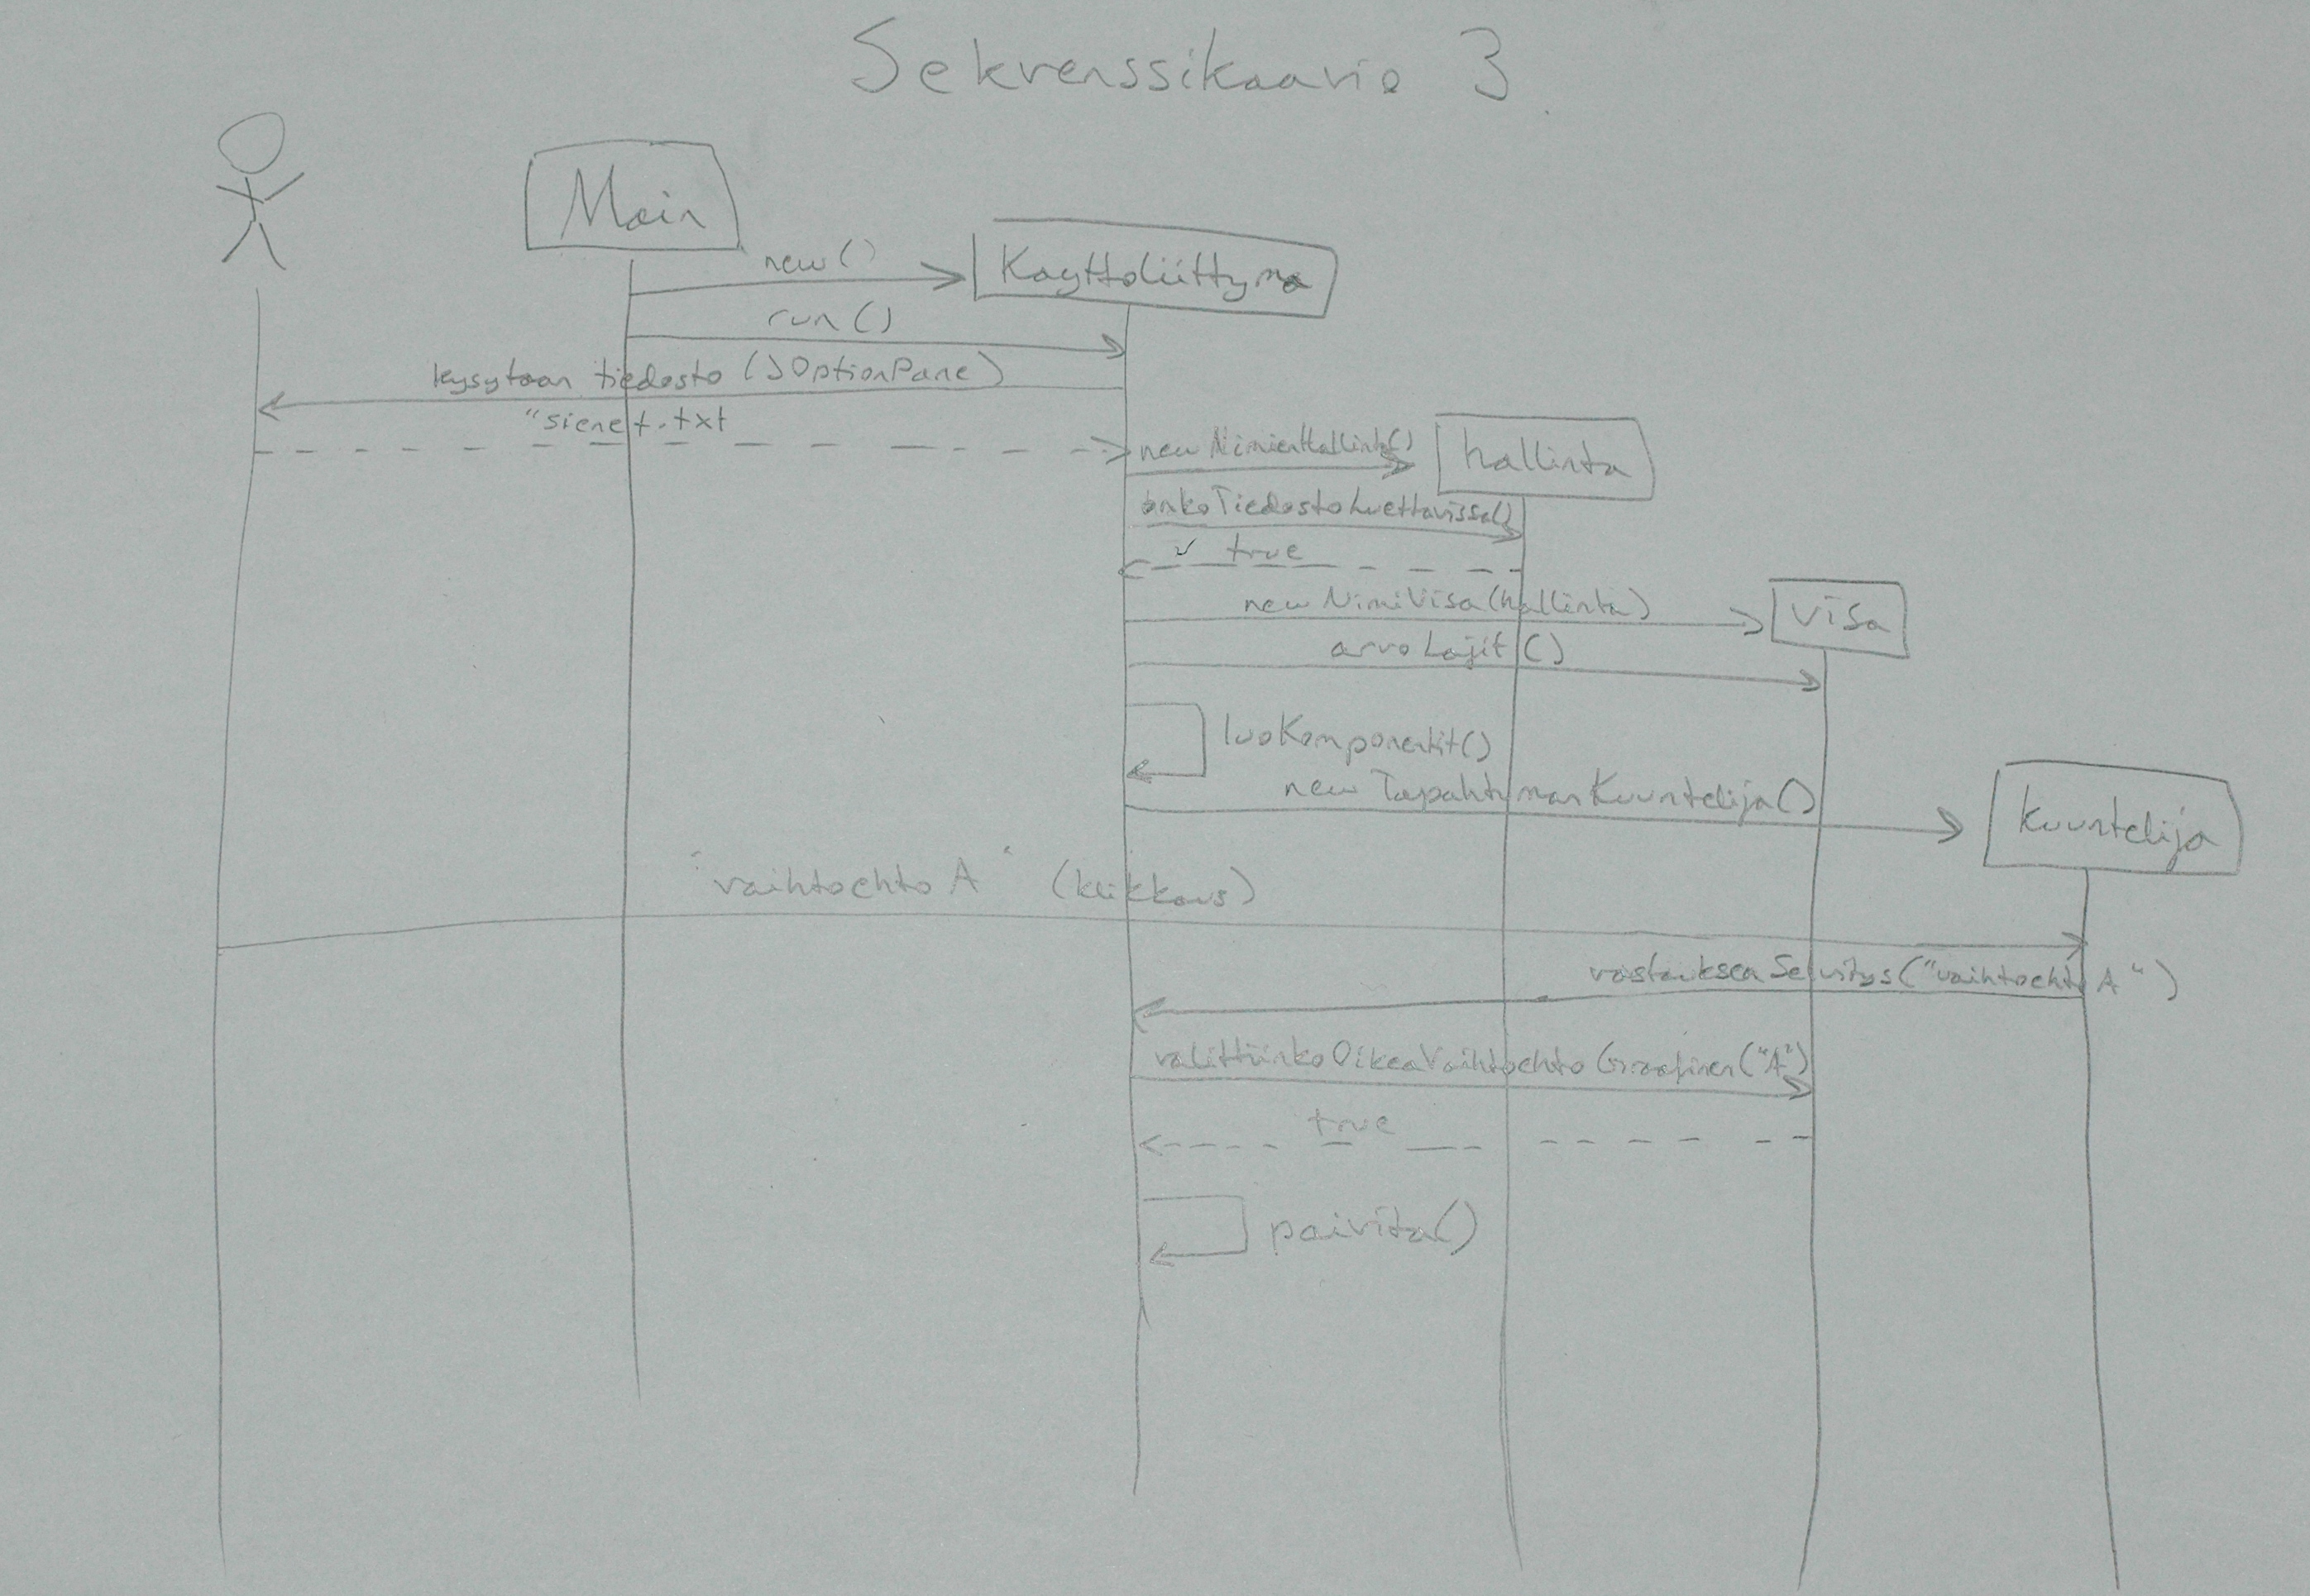 Sekvenssikaavio 3
Main
new()
Kayttoliittyma
run()
kysytaan tiedosto (JOptionPane)
"sienet.txt
new NimienHallinta()
hallinta
onkoTiedostoLuettavissa()
true
new NimiVisa(hallinta)
visa
arvoLajit()
luoKomponentit()
new TapahtumanKuuntelija()
kuuntelija
"vaihtoehto A" (klikkaus)
vastauksenSelvitys("vaihtoehto A")
valittiinkoOikeaVaihtoehtoGraafinen("A")
true
paivita()